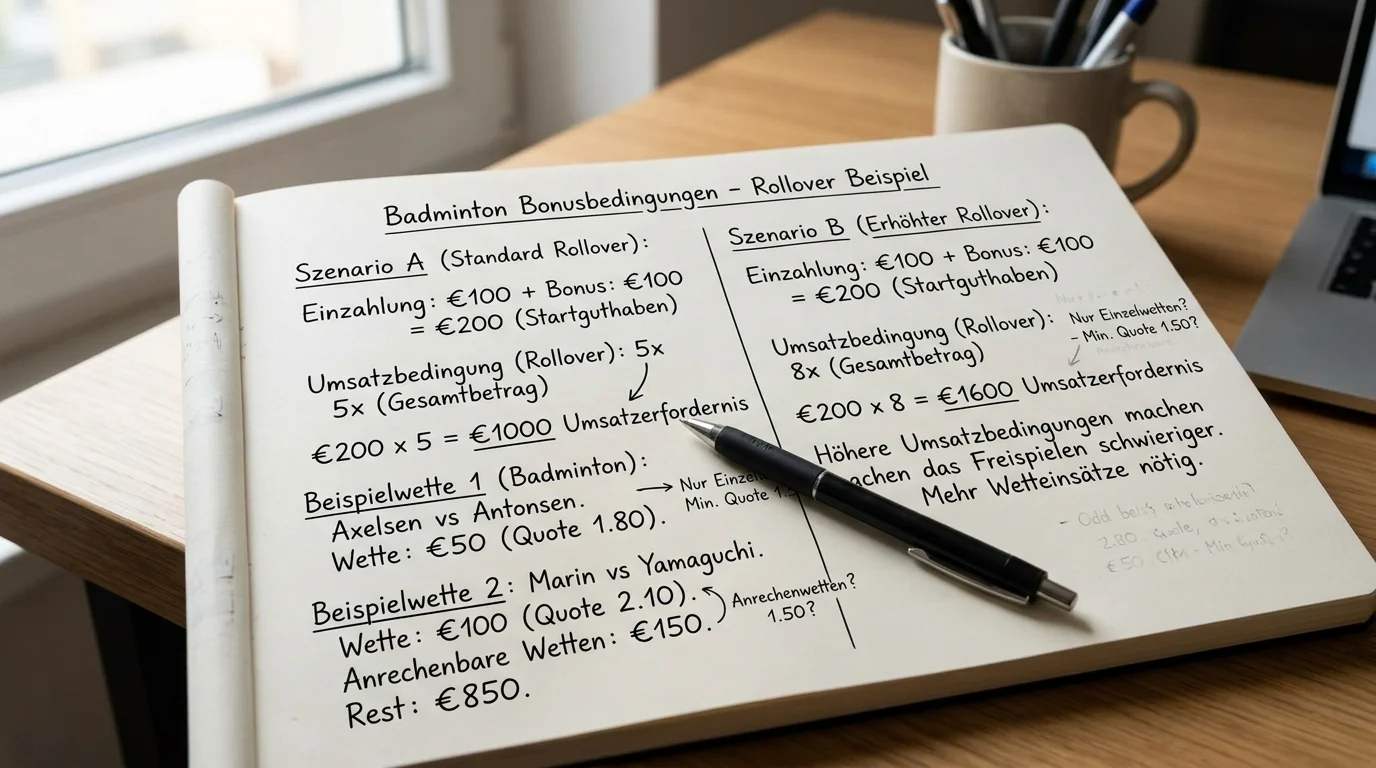 Badminton Bonusbedingungen – Rollover Beispiel
Szenario A (Standard Rollover):
Einzahlung: €100 + Bonus: €100
= €200 (Startguthaben)
Umsatzbedingung (Rollover): 5x
5x (Gesamtbetrag)
€200 x 5 = €1000 Umsatzerfordernis
Beispielwette 1 (Badminton):
Axelsen vs Antonsen.
Wette: €50 (Quote 1.80).
→ Nur
Min. Quote
Beispielwette 2: Marin vs Yamaguchi.
Wette: €100 (Quote 2.10).
Anrechenbare Wetten: €150.
Rest: €850.
Anrechenwetten?
1.50?
Szenario B (Erhöhter Rollover):
Einzahlung: €100 + Bonus: €100
= €200 (Startguthaben)
Umsatzbedingung (Rollover):
8x (Gesamtbetrag)
Nur Einzelwetten?
– Min. Quote 1.50?
€200 x 8 = €1600 Umsatzerfordernis
Höhere Umsatzbedingungen machen
das Freispielen schwieriger.
Mehr Wetteinsätze nötig.